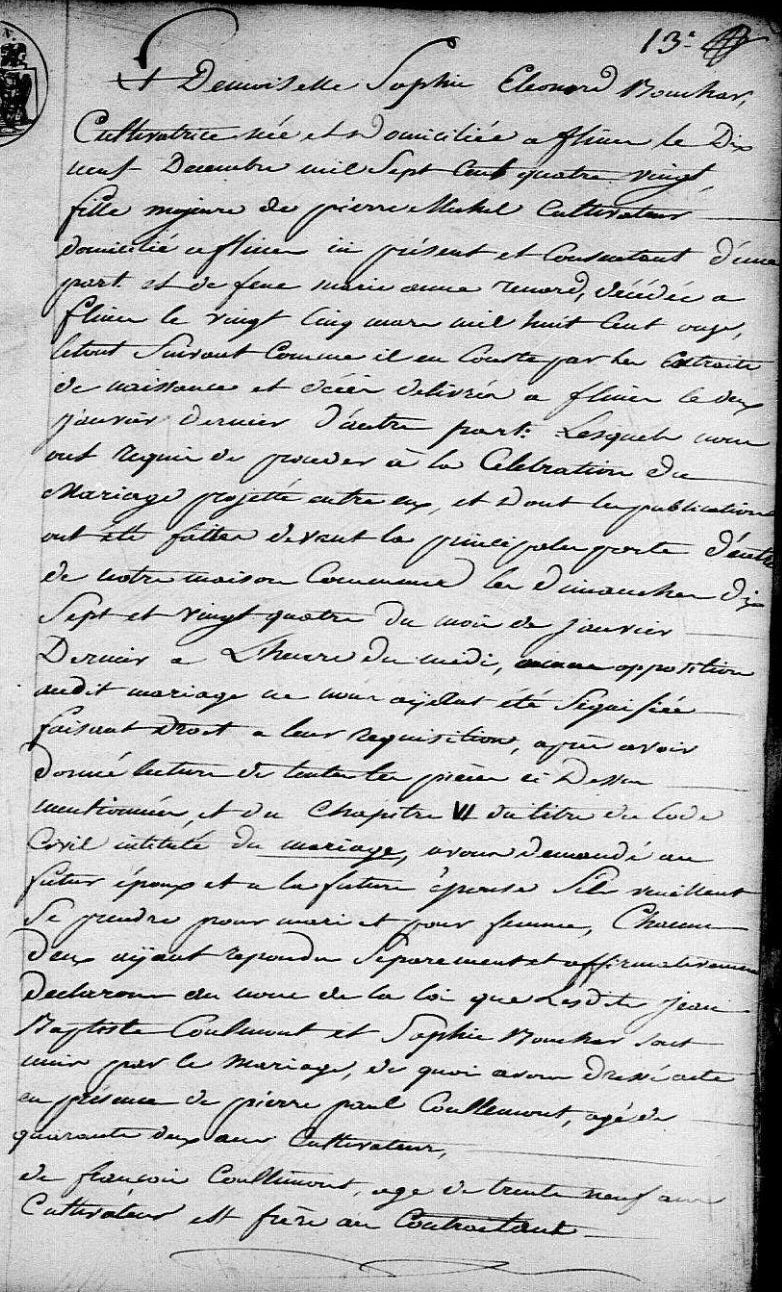 13e
Et Demoiselle Sophie Eleonore Bouchar,
Cultivatrice née et Domiciliée a flines le Dix
neuf Decembre mil Sept Cent quatre vingt,
fille majeure de pierre Michel Cultivateur
domicilié a flines ici présent et Consentant d'une
part et de feue marie anne renard, décédée a
flines le vingt Cinq mars mil huit Cent onze,
letout Suivant Comme il en Conste par les Extraits
de naissance et décès delivrés a flines le deux
janvier dernier d'autre part: Lesquels nous
ont requis de proceder à la Celebration du
Mariage projetté entre eux, et Dont les publications
ont été faites devant la principale porte d'entrée
de notre maison Commune les Dimanches dix
Sept et vingt quatre du mois de janvier
Dernier a L'heure du midi, aucune opposition
audit mariage ne nous aÿant été Signifiée
faisant Droit a leur requisition, après avoir
donné lecture de toutes les pièces ci Dessus
mentionnées, et du Chapitre VI du titre du Code
Civil intitulé du mariage, avons demandé au
futur époux et a la future épouse S'ils veuillent
Se prendre pour mari et pour femme, Chacun
deux aÿant repondu Séparement et affirmativement
declarons au nom de la loi que Lesdits jean
Baptiste Coullemont et Sophie Bouchar sont
unis par le Mariage, de quoi avons dressé acte
en présence de pierre paul Coullemont, agé de
quarante deux ans Cultivateur,
de françois Coullemont, age de trente neuf ans
Cultivateur est frère au Contractant